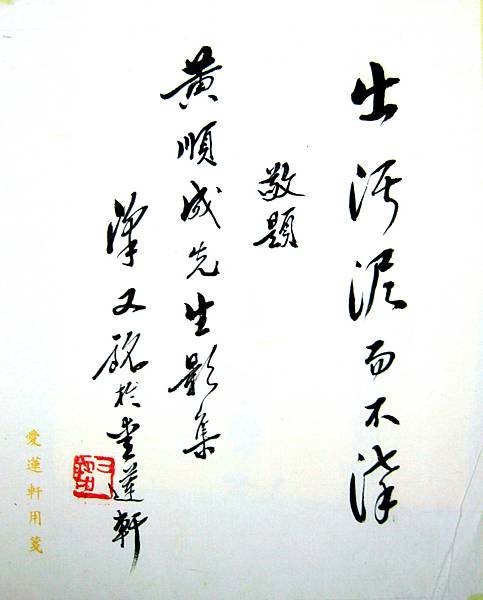 出污泥而不染
敬題
黃順成先生影集
梁又銘於愛蓮軒
愛蓮軒用箋